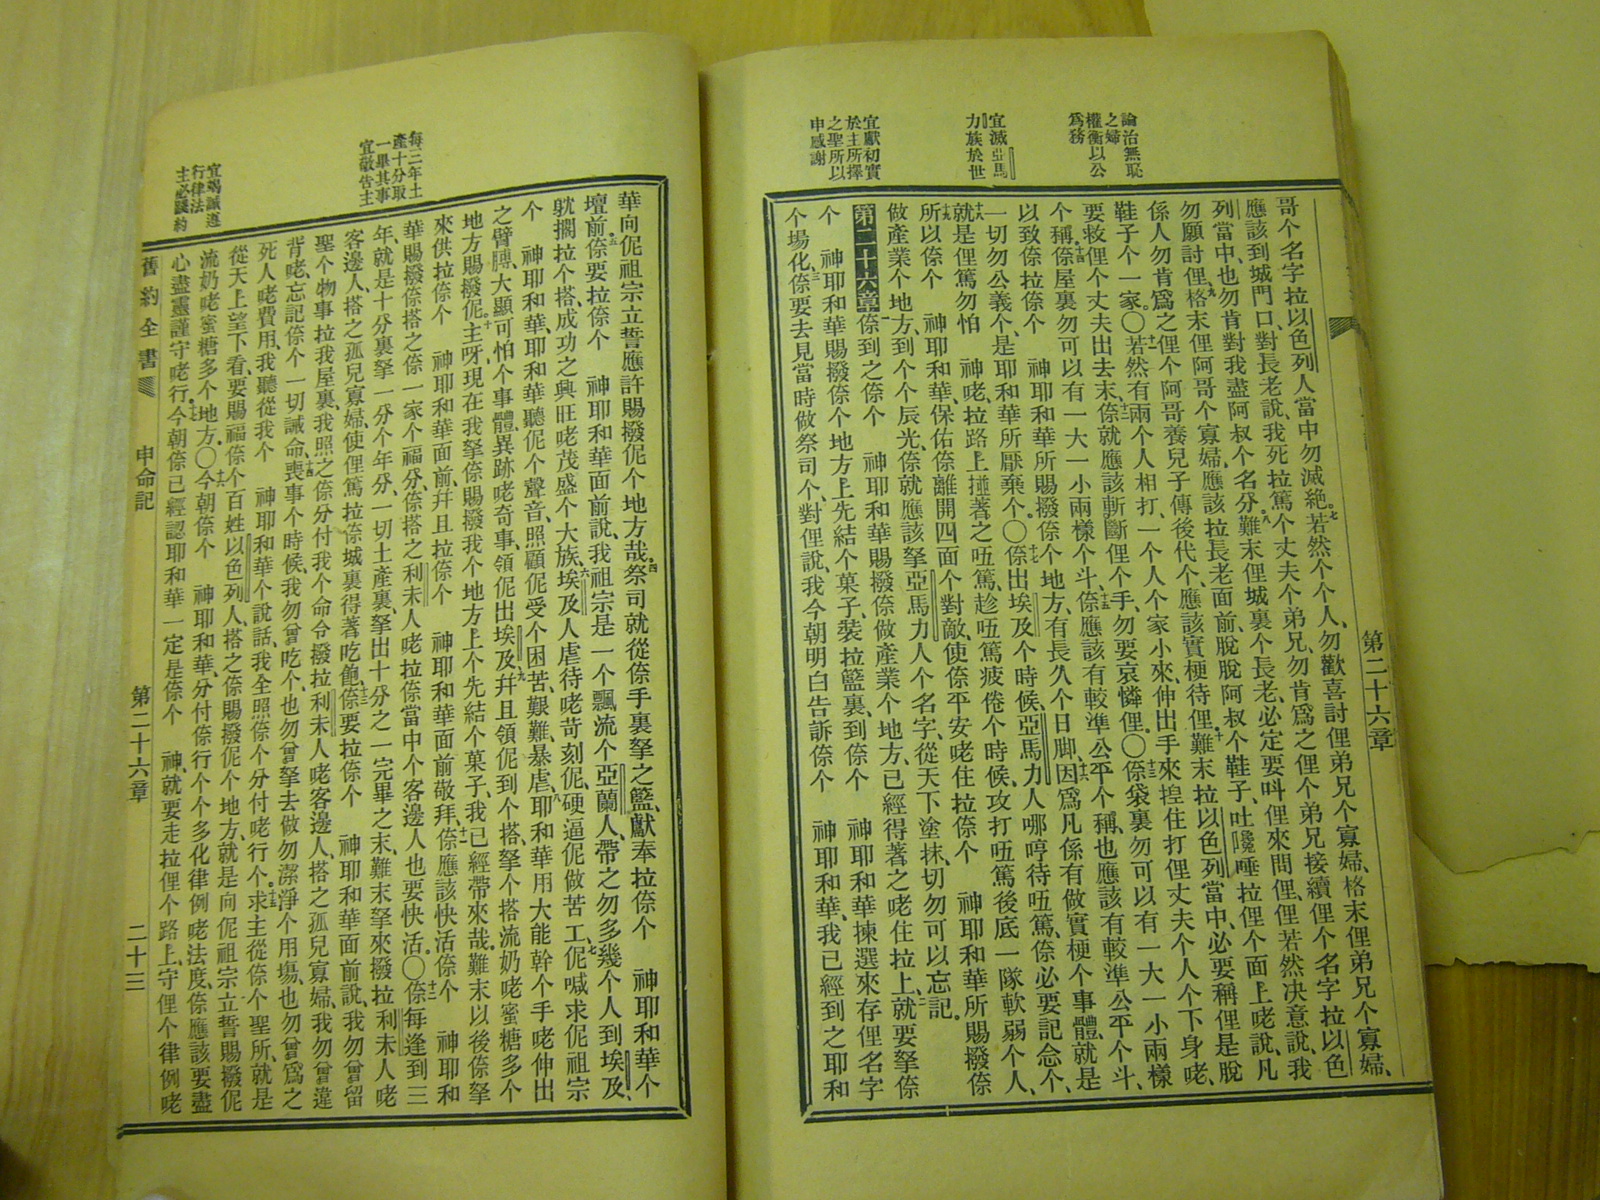 論治無恥
之婦
權衡以公
爲務
宜滅亞馬
力族於世
宜獻初實
於主所擇
之聖所以
申感謝
第二十六章
哥个名字拉以色列人當中勿滅絶七若然个个人勿歡喜討俚弟兄个寡婦格末俚弟兄个寡婦
應該到城門口對長老說我死拉篤个丈夫个弟兄勿肯爲之俚个弟兄接續俚个名字拉以色
列當中也勿肯對我盡阿叔个名分八難末俚城裏个長老必定要呌俚來問俚俚若然决意說我
勿願討俚九格末俚阿哥个寡婦應該拉長老面前脫脫阿叔个鞋子吐饞唾拉俚个面上咾說凡
係人勿肯爲之俚个阿哥養兒子傳後代个應該實梗待俚十難末拉以色列當中必要稱俚是脫
鞋子个一家〇十一若然有兩个人相打一个人个家小來伸出手來揑住打俚丈夫个人个下身咾
要救俚个丈夫出去末十二倷就應該斬斷俚个手勿要哀憐俚〇十三倷袋裏勿可以有一大一小兩樣
个稱十四倷屋裏勿可以有一大一小兩樣个斗十五倷應該有較準公平个稱也應該有較準公平个斗
以致倷拉倷个 神耶和華所賜撥倷个地方有長久个日脚十六因爲凡係有做實梗个事體就是
一切勿公義个是耶和華所厭棄个〇十七倷出埃及个時候亞馬力人哪哼待㕶篤倷必要記念个
十八就是俚篤勿怕 神咾拉路上撞著之㕶篤趁㕶篤疲倦个時候攻打㕶篤後底一隊軟弱个人
十九所以倷个 神耶和華保佑倷離開四面个對敵使倷平安咾住拉倷个 神耶和華所賜撥倷
做產業个地方到个个辰光倷就應該拏亞馬力人个名字從天下塗抹切勿可以忘記
第二十六章一倷到之倷个 神耶和華賜撥倷做產業个地方已經得著之咾住拉上二就要拏倷
个 神耶和華賜撥倷个地方上先結个菓子裝拉籃裏到倷个 神耶和華揀選來存俚名字
个塲化三倷要去見當時做祭司个對俚說我今朝明白告訴倷个 神耶和華我已經到之耶和
每三年土
產十分取
一畢其事
宜敬告主
宜竭誠遵
行律法
主必踐約
華向伲祖宗立誓應許賜撥伲个地方哉四祭司就從倷手裏拏之籃獻奉拉倷个 神耶和華个
壇前五倷要拉倷个 神耶和華面前說我祖宗是一个飄流个亞蘭人帶之勿多幾个人到埃及
躭擱拉个搭成功之興旺咾茂盛个大族六埃及人虐待咾苛刻伲硬逼伲做苦工七伲喊求伲祖宗
个 神耶和華耶和華聽伲个聲音照顧伲受个困苦艱難暴虐八耶和華用大能幹个手咾伸出
之臂膊大顯可怕个事體異跡咾奇事領伲出埃及九幷且領伲到个搭拏个搭流奶咾蜜糖多个
地方賜撥伲十主呀現在我拏倷賜撥我个地方上个先結个菓子我已經帶來哉難末以後倷拏
來供拉倷个 神耶和華面前幷且拉倷个 神耶和華面前敬拜十一倷應該快活倷个 神耶和
華賜撥倷搭之倷一家个福分倷搭之利未人咾拉倷當中个客邊人也要快活〇十二倷每逢到三
年就是十分裏拏一分个年分一切土產裏拏出十分之一完畢之末難末拏來撥拉利未人咾
客邊人搭之孤兒寡婦使俚篤拉倷城裏得著吃飽十三倷要拉倷个 神耶和華面前說我勿曾留
聖个物事拉我屋裏我照之倷分付我个命令撥拉利未人咾客邊人搭之孤兒寡婦我勿曾違
背咾忘記倷个一切誡命十四喪事个時候我勿曾吃个也勿曾拏去做勿潔淨个用塲也勿曾爲之
死人咾費用我聽從我个 神耶和華个說話我全照倷个分付咾行个十五求主從倷个聖所就是
從天上望下看要賜福倷个百姓以色列人搭之倷賜撥伲个地方就是向伲祖宗立誓賜撥伲
流奶咾蜜糖多个地方〇十六今朝倷个 神耶和華分付倷行个个多化律例咾法度倷應該要盡
心盡靈謹守咾行十七今朝倷已經認耶和華一定是倷个 神就要走拉俚个路上守俚个律例咾
舊約全書 申命記 第二十六章 二十三